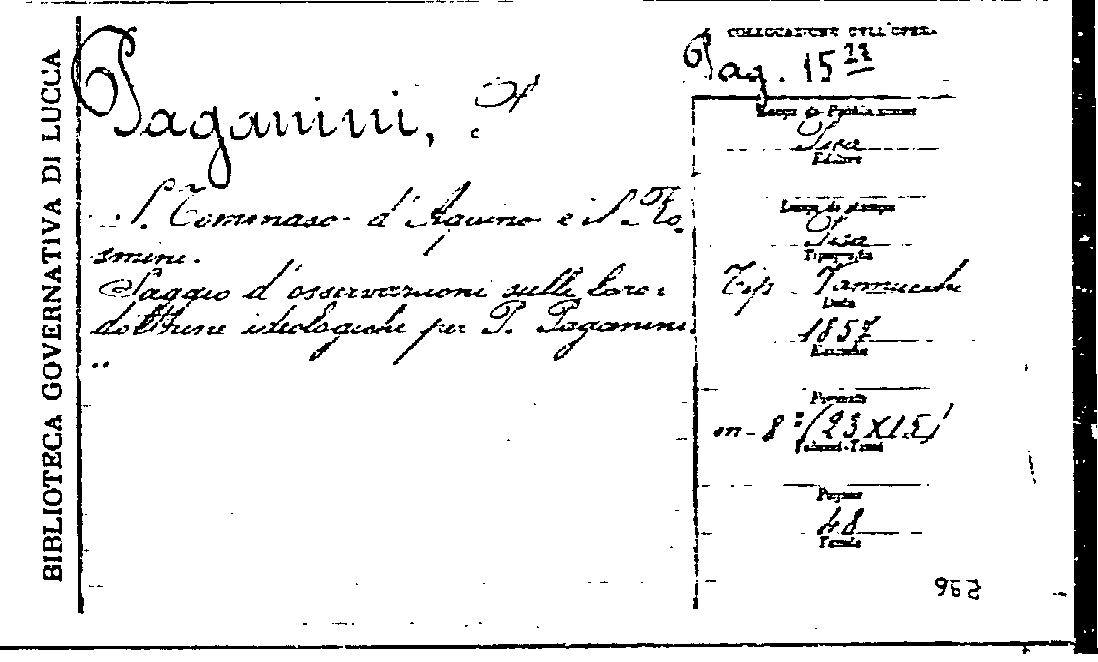 BIBLIOTECA GOVERNATIVA DI LUCCA
Paganini,
S. Tommaso d'Aquino e il Ro-
smini.
Saggio d'osservazioni sulle loro
dottrine ideologiche per P. Paganini
COLLOCAZIONE DELL'OPERA
Pag. 15
Luogo di Pubblicazione
Pisa
Editore
Luogo di stampa
Pisa
Tipografia
Tip. Vannucchi
Data
1857
Formato
in-8° (23X15)
Volumi-Tomi
Pagine
48
Tavole
962